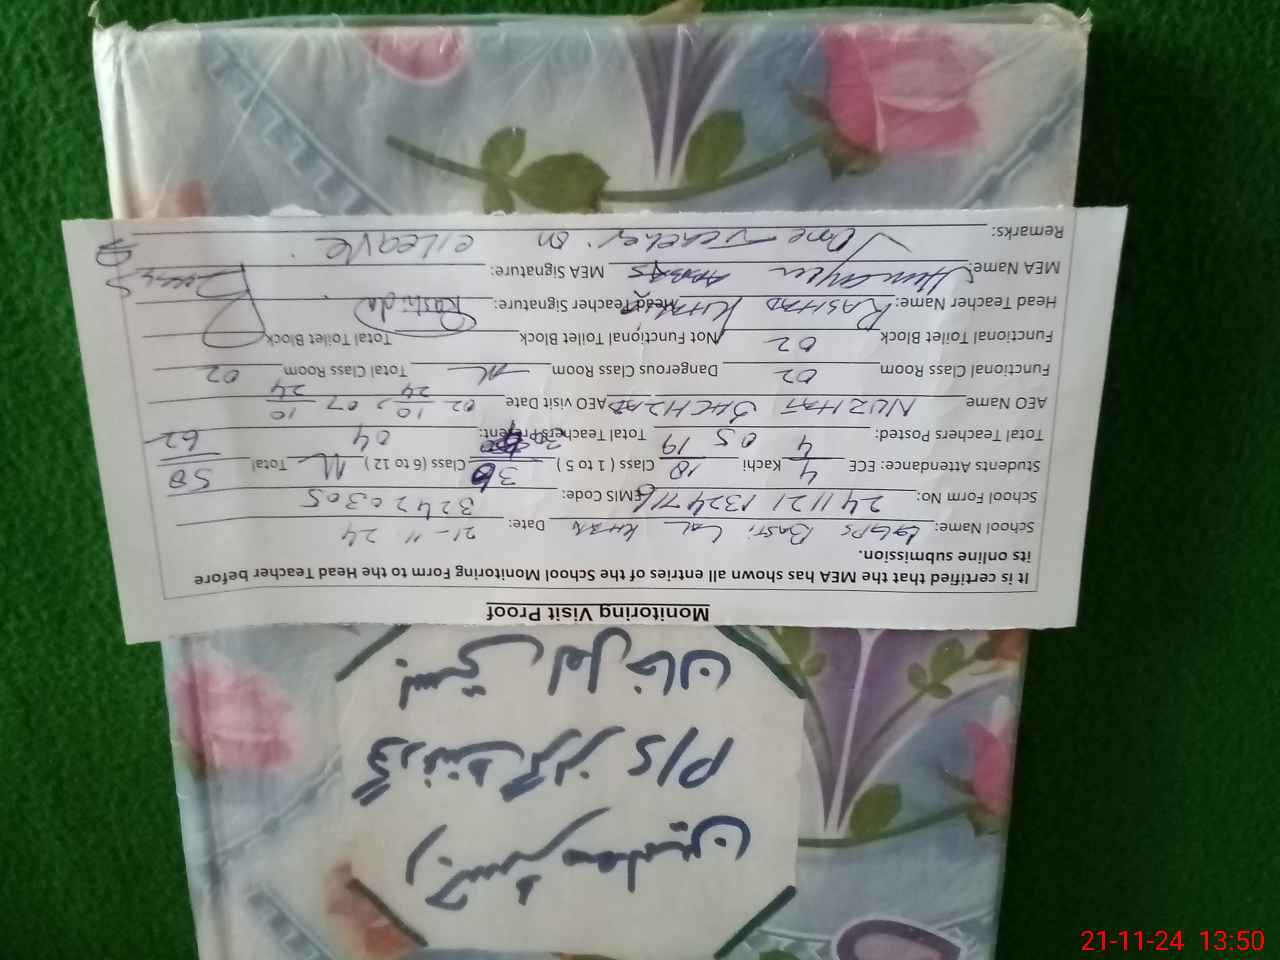 Monitoring Visit Proof
It is certified that the MEA has shown all entries of the School Monitoring Form to the Head Teacher before
its online submission.
School Name: GGPS Basti Lal Khan Date: 21-11-24
School Form No: 241121132471 EMIS Code: 32420305
Students Attendance: ECE 4/4 Kachi 18/19 Class ( 1 to 5 ) 36 Class (6 to 12 ) Total 58/62
Total Teachers Posted: 05 Total Teachers Present: 04
AEO Name NUZHAT AEO visit Date 02/10/24, 07/10/24
Functional Class Room 02 Dangerous Class Room Total Class Room 02
Functional Toilet Block 02 Not Functional Toilet Block Total Toilet Block
Head Teacher Name: RASHIDA Head Teacher Signature: Rashida
MEA Name: Humayun ABBAS MEA Signature:
Remarks: One Teacher on c/Leave
رجسٹر معلمین
گورنمنٹ گرلز P/S
بستی لعل خان
21-11-24 13:50